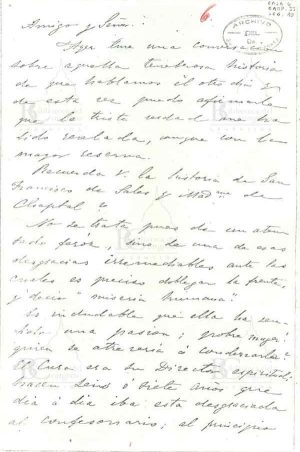 6.
ARCHIVO
Amigo y Señor:
Ayer tuve una conversación
sobre aquella tenebrosa historia
de que hablamos el otro día y
de esta vez puedo afirmarle
que la triste verdad me ha
sido revelada, aunque con la
mayor reserva.
Recuerda V. la historia de San
Francisco de Sales y Mad.me de
Chaptal?
No se trata pues de un aten
tado feroz, sino de una de esas
desgracias irremediables ante las
cuales es preciso doblegar la frente
y decir "miseria humana"
Es indudable que ella ha sen
tido una pasion; ¡pobre mujer!
quien se atreveria á condenarla?
El Cura era su Director espiritual:
hacen seis ó siete años que
dia á dia iba esta desgraciada
al confesonario; al principio